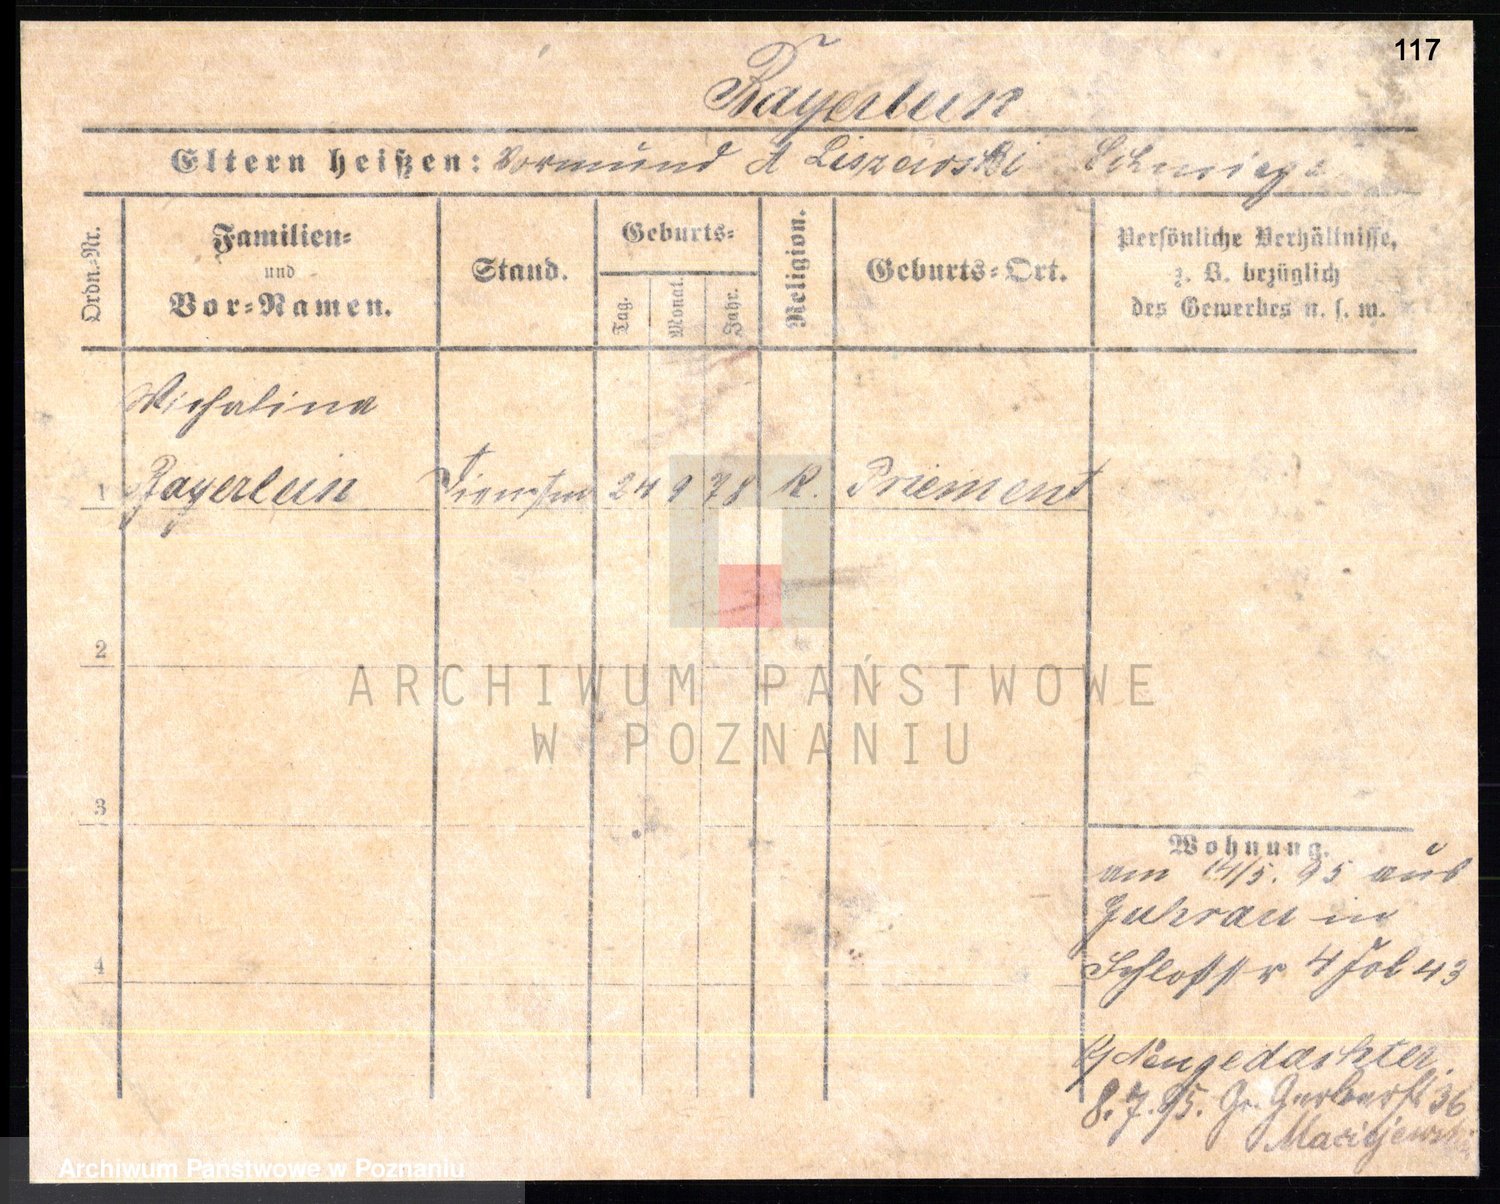 117
Bayerlein
Eltern heißen: Vormund A Liszewski Schmiegel
Ordn.=Nr.
Familien=
und
Vor=Namen.
Stand.
Geburts=
Tag.
Monat.
Jahr.
Religion.
Geburts=Ort.
Persönliche Verhältnisse,
z. B. bezüglich
des Gewerbes u. s. w.
Michalina
1 Bayerlein 24 9 78 K. Priement
2
ARCHIWUM PAŃSTWOWE
W POZNANIU
3
Wohnung.
am 14/5. 95 aus
in
4
Schloßstr 4 43
8.7.95. Gr. Gerberst 36
Maciejewski
Archiwum Państwowe w Poznaniu